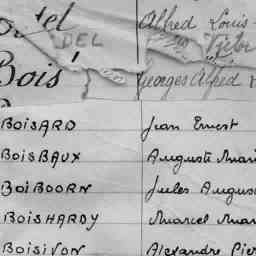 Alfred Louis
DEL
Victor
Bois
Georges Alfred
BOISARD Jean Ernest
BOISBAUX Auguste Mari
BOIBOORN Jules Augus
BOISHARDY Marcel Mar
BOISIVON Alexandre Pier